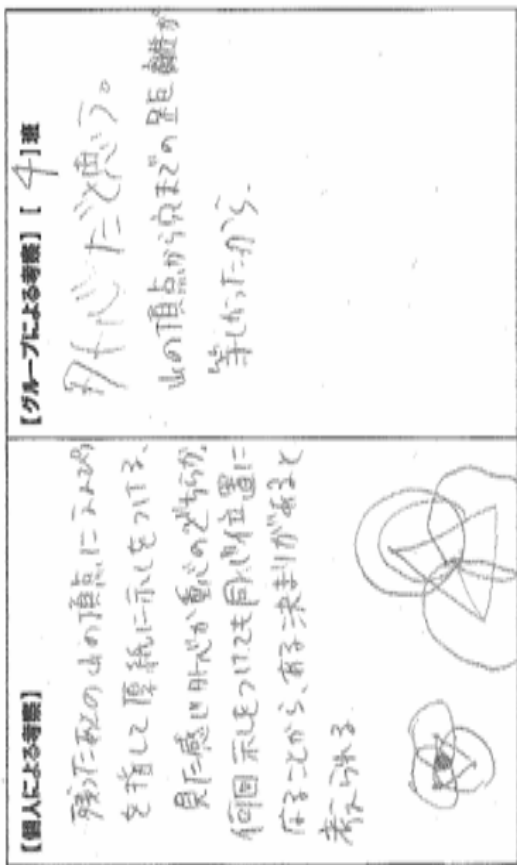 【個人による考察】
残った砂の山の頂点につまようじ
を指して厚紙に示しをつける、
見た感じ外心か重心のどちらか。
何回示しをつけても同じ位置に
なることから、ある決まりがあると
考えられる
【グループによる考察】 [ 4 ]班
外心だと思う。
山の頂点から穴までの距離が
等しかったから。